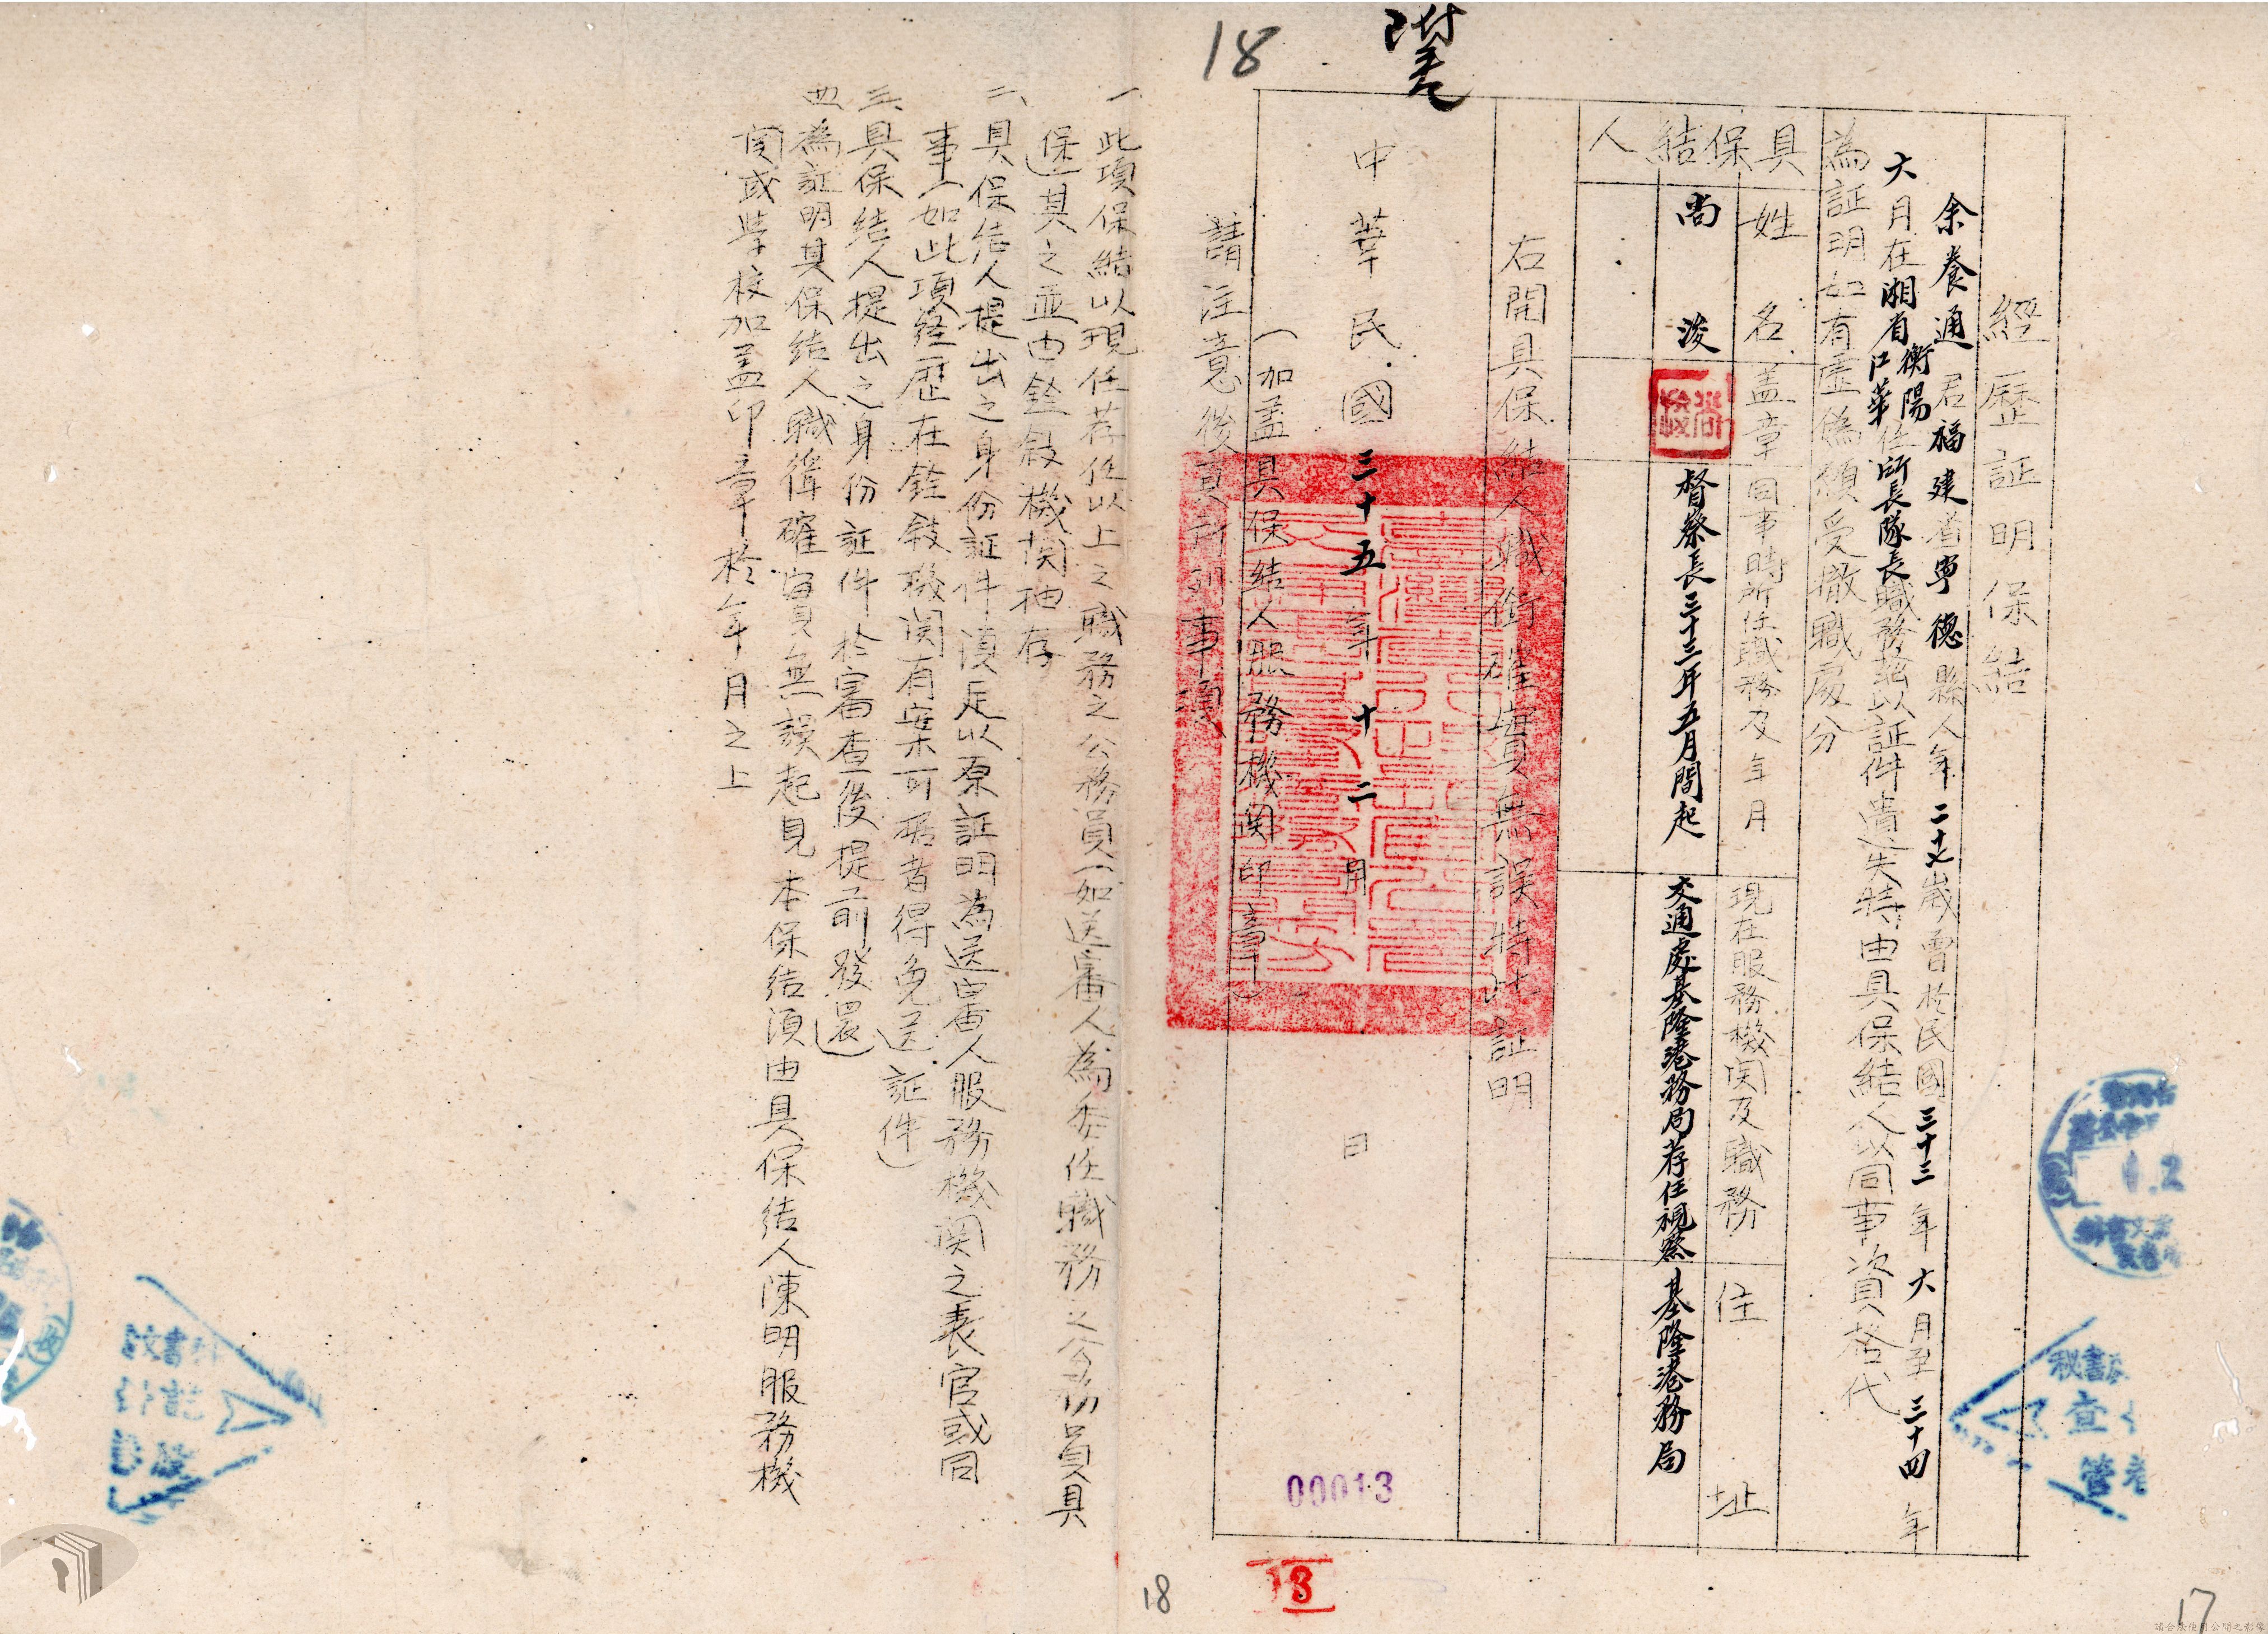 18
經歷証明保結
余養通君福建省寧德縣人年二十七歲曾於民國三十三年六月至三十四年
六月在湘省衡陽江華任所長隊長職務茲以証件遺失特由具保結人以同事資格代
為証明如有虛偽願受撤職處分
具保結人
姓名
蓋章
同事時所任職務及年月
現在服務機関及職務
住址
尚浚
尚浚
督察長三十三年五月間起
交通處基隆港務局荐任視察
基隆港務局
右開具保結人職銜確實無誤特此証明
中華民國三十五年十二月 日
(加蓋具保結人服務機関印章)
請注意後頁所列事項
一、此項保結以現任荐任以上之職務之公務員(如送審人為委任職務之公務員具
保)其之並由銓敍機関抽存
二、具保結人提出之身份証件須足以原証明為送審人服務機関之長官或同
事(如此項經歷在銓敍機関有案可据者得免送証件)
三、具保結人提出之身份証件於審查後提前發還)
四、為証明其保結人職銜確實無誤起見本保結須由具保結人陳明服務機
関或學校加蓋印章於年月之上
00013
13
18
17
秘書
查
管卷
請合法使用公開之影像